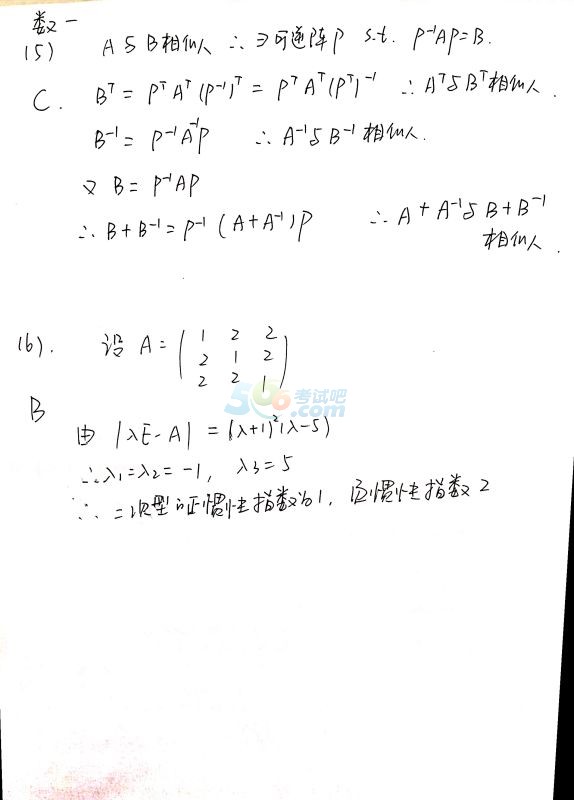 数一
(5) A与B相似 ∴ ∃可逆阵P s.t. P⁻¹AP=B.
C. Bᵀ = PᵀAᵀ(P⁻¹)ᵀ = PᵀAᵀ(Pᵀ)⁻¹ ∴ Aᵀ与Bᵀ相似.
B⁻¹ = P⁻¹A⁻¹P ∴ A⁻¹与B⁻¹相似.
又 B = P⁻¹AP
∴ B+B⁻¹ = P⁻¹(A+A⁻¹)P ∴ A+A⁻¹与B+B⁻¹
相似.
(6). 设 A = ( 1 2 2
2 1 2
2 2 1 )
566考试吧
.com
B
由 |λE-A| = (λ+1)²(λ-5)
∴ λ₁=λ₂=-1, λ₃=5
∴ 二次型的正惯性指数为1, 负惯性指数2